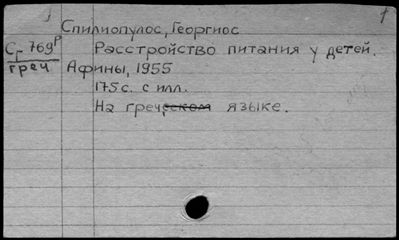 Спилиопулос, Георгиос
Сг 769р Расстройство питания у детей.
греч Афины, 1955
175с. с илл.
На греческом языке.